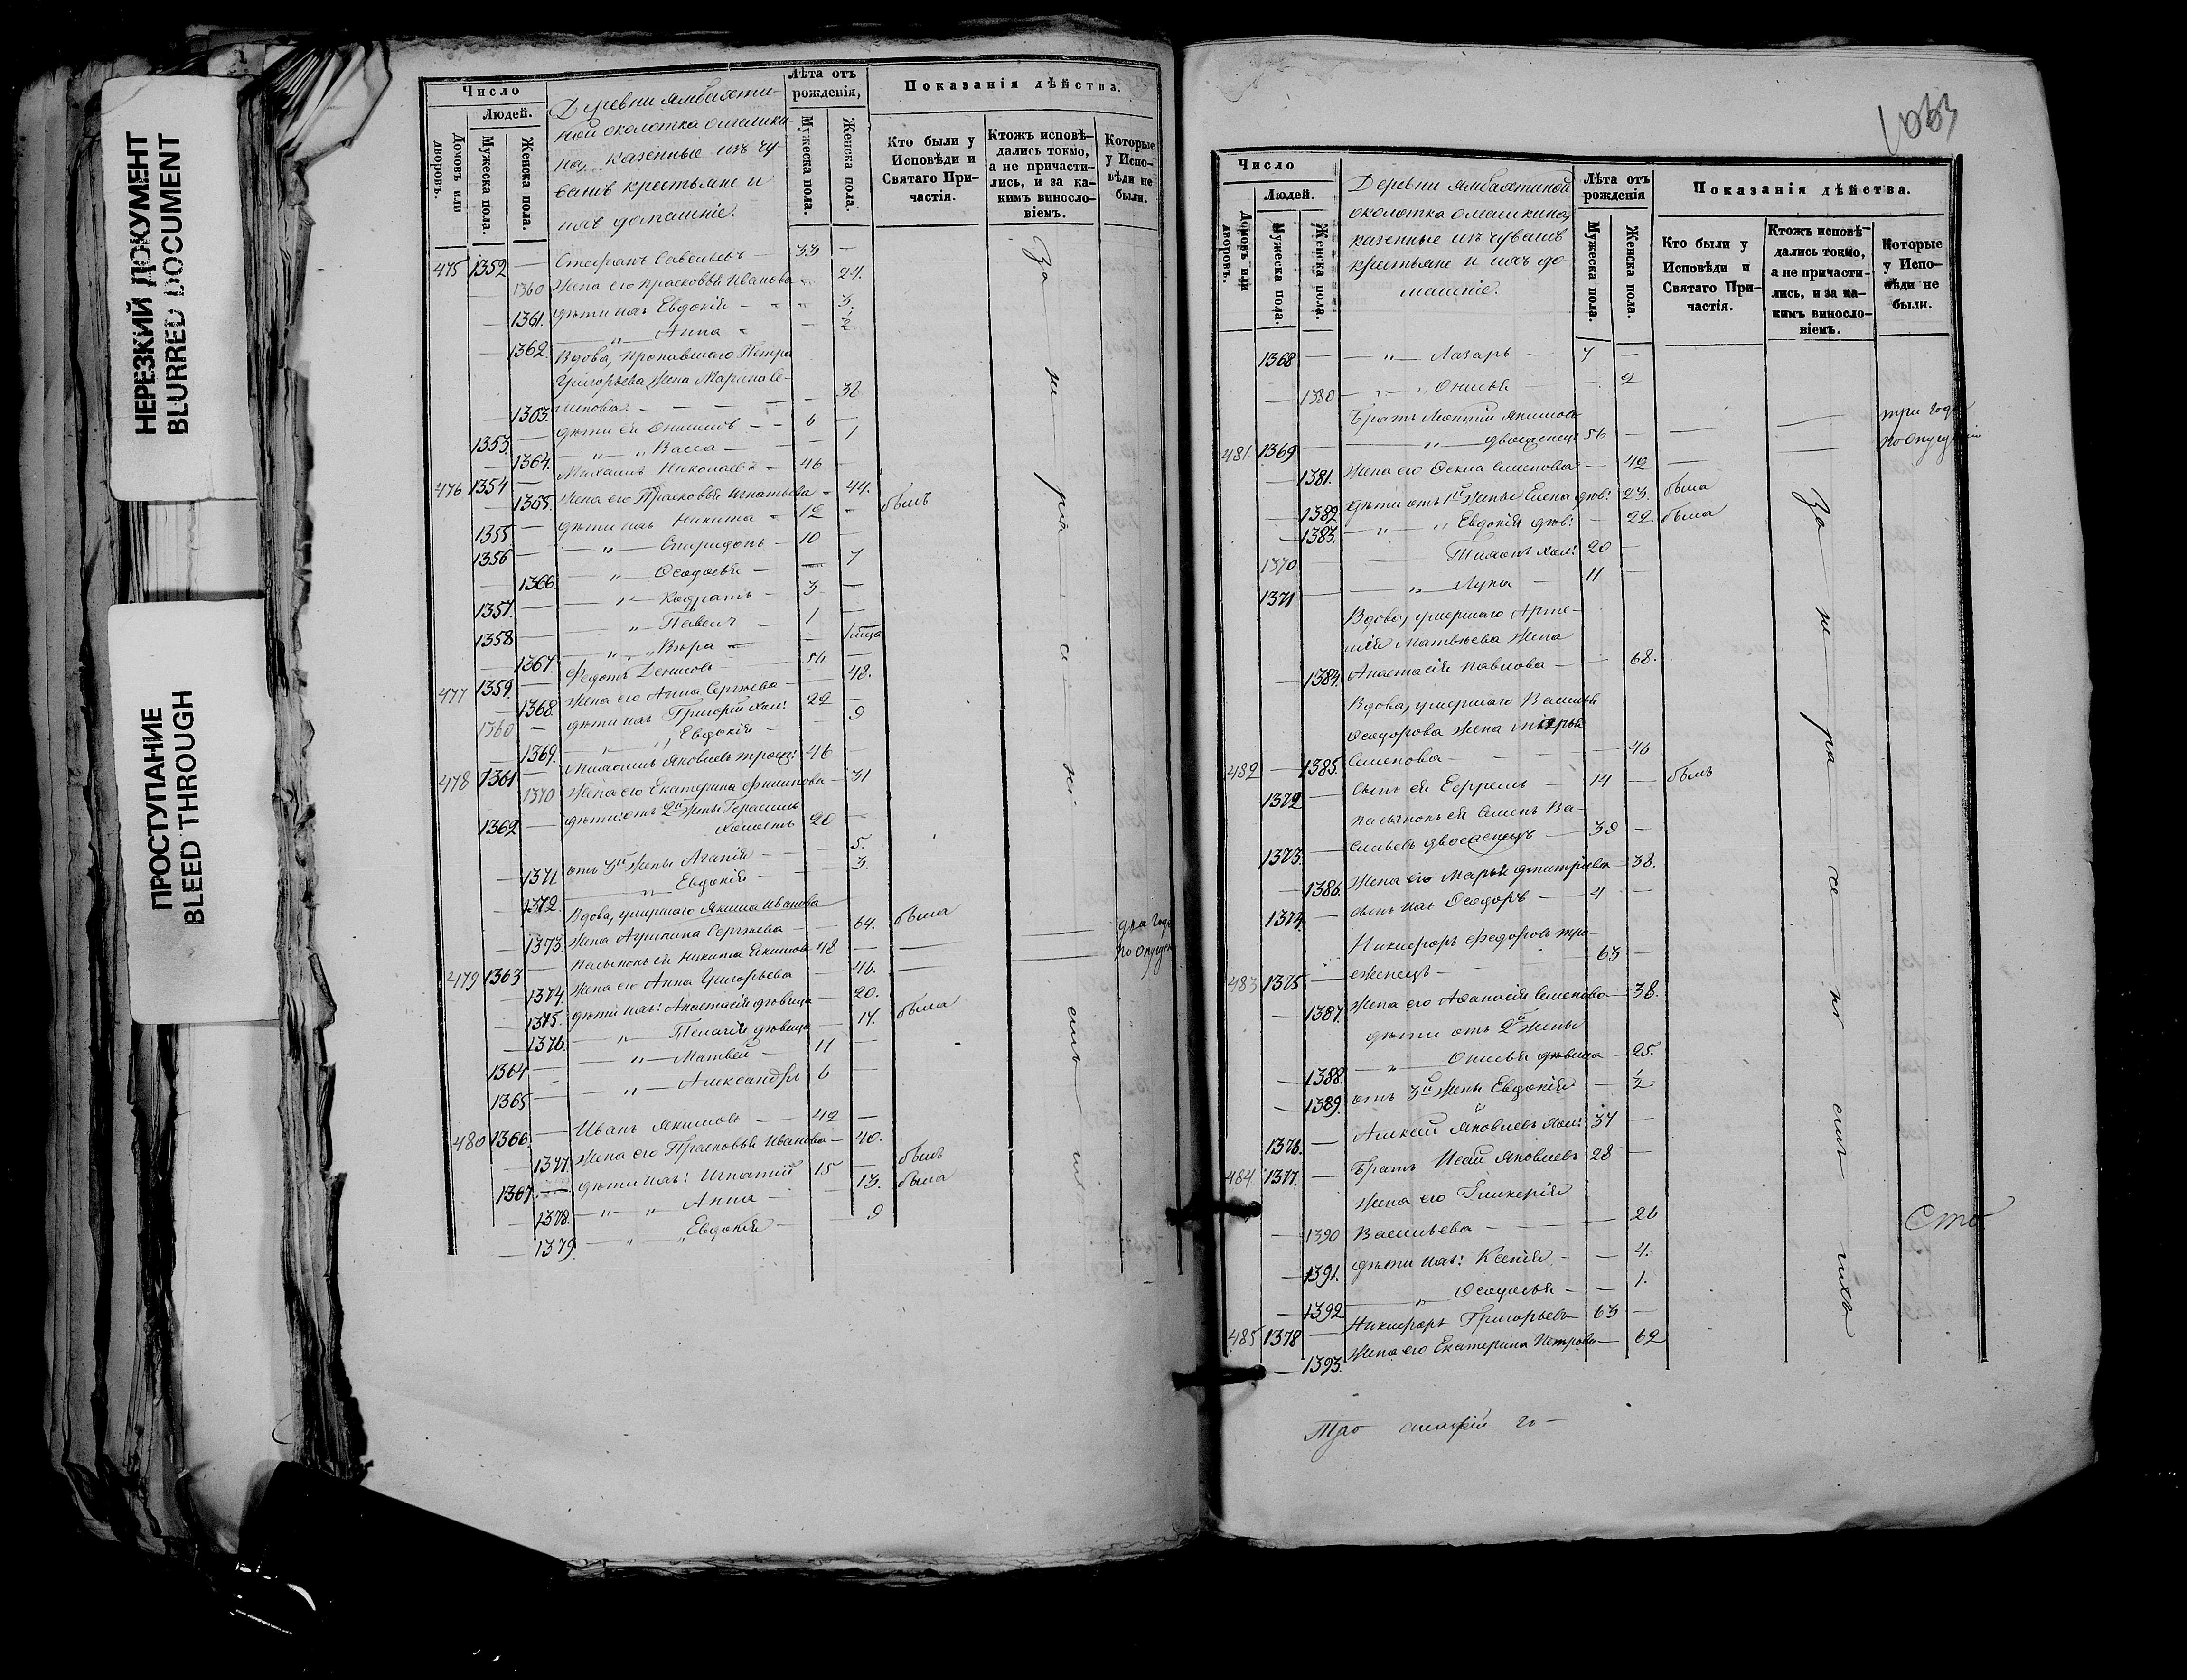 НЕРЕЗКИЙ ДОКУМЕНТ
BLURRED DOCUMENT
ПРОСТУПАНИЕ
BLEED THROUGH
Число
Людей.
Домовъ или дворовъ.
Мужеска пола.
Женска пола.
Деревни Ямбахти-
ной околотка
казенные изъ чу-
вашъ крестьяне и
ихъ домашніе.
Лѣта отъ рожденія,
Мужеска пола.
Женска пола.
Показанія дѣйства.
Кто были у Исповѣди и Святаго При-частія.
Ктожъ исповѣ-дались токмо, а не причасти-лись, и за ка-кимъ винословіемъ.
Которые у Испо-вѣди не были.
475 1352 — Стефанъ Савельевъ — 33 —
— 1360 Жена его Прасковья Иванова — 27.
— 1361. дѣти ихъ Евдокія — 3.
— 1362. — „ — Анна — ½
Вдова, пропавшаго Петра
Григорьева жена Марина Се-
— 1363. менова. — — 32
1353. — дѣти ея Онисимъ — 6 —
— 1364. — „ — Васса — — 1
476 1354 — Михаилъ Николаевъ — 46 —
— 1365. Жена его Прасковья Игнатьева — 44.
1355 — дѣти ихъ Никита — 12 — былъ
1356 — „ — Спиридонъ — 10 —
— 1366 — „ — Ѳеодосья — 7
1357. — „ — Кодратъ — 3 —
1358 — „ — Павелъ — 1 —
— 1367. — „ — Вѣра —
477 1359. — Федотъ Денисовъ — 54 —
— 1368. Жена его Анна Сергѣева — 48.
1360 — дѣти ихъ Григорій хол: 22 —
— 1369. — „ — Евдокія — 9
478 1361 — Яковлевъ троеж: 46 —
— 1370 Жена его Екатерина Филипова — 31
1362 — дѣти: отъ 2й жены Герасимъ
холостъ 20 —
— 1371 отъ 3й жены Агапія — 5.
— 1372. — „ — Евдокія — 3.
Вдова, умершаго Якима Иванова
— 1373. жена Агрипина Сергѣева — 64. была
479 1363 — пасынокъ ея Никита Якимовъ 48 — — — два года по опущен
— 1374. Жена его Анна Григорьева — 46. —
— 1375. дѣти ихъ: Анастасія дѣвица — 20.
— 1376. — „ — Пелагія дѣвица — 17. была
1364 — „ — Матвей — 11 —
1365 — „ — Александръ 6 —
480 1366. — Иванъ Якимовъ — 42 —
— 1377. Жена его Прасковья Иванова — 40.
1367. — дѣти ихъ: Игнатій 15 — былъ
— 1378. — „ — Анна — 13. была
— 1379. — „ — Евдокія — 9
За не ра се ні емъ
Число
Людей.
Домовъ или дворовъ.
Мужеска пола.
Женска пола.
Деревни Ямбахтиной
околотка
казенные изъ чувашъ
крестьяне и ихъ до-
машніе.
Лѣта отъ рожденія
Мужеска пола.
Женска пола.
Показанія дѣйства.
Кто были у Исповѣди и Святаго При-частія.
Ктожъ исповѣ-дались токмо, а не причасти-лись, и за ка-кимъ винословіемъ.
Которые у Испо-вѣди не были.
1368 — „ — Лазарь — 7 —
— 1380 — „ — Онисья — 2
Братъ Леонтій Якимовъ
481. 1369 — „ — двоеженецъ 56 — — — три года по опущенію
— 1381. Жена его Ѳекла Семенова — 42 —
— 1382 дѣти отъ 1й жены Елена дѣв: 23. была
— 1383. — „ — Евдокія дѣв: — 22. была
1370 — хол: 20 —
1371 — „ — Лука — 11
Вдова, умершаго Арте-
мія Матвѣева жена
— 1384. Анастасія Павлова — — 68.
Вдова, умершаго Василья
Ѳеодорова жена Марья
482 — 1385. Семенова — — 46
1372 — сынъ ея Ефремъ — 14 — былъ
пасынокъ ея Семенъ Ва-
1373. — сильевъ двоеженецъ — 39 —
— 1386. Жена его Марья Дмитріева — 38.
1374. — сынъ ихъ Ѳеодоръ — 4 —
Никифоръ Федоровъ тро-
483 1375 — еженецъ — 63 —
— 1387. Жена его Афанасія Семенова — 38.
дѣти отъ 2й жены
— 1388. — „ — Онисья дѣвица — 25.
— 1389. отъ 3й жены Евдокія — ½
1376. — Алексѣй Яковлевъ хол: 37 —
484 1377. — Братъ Исай Яковлевъ 28 —
Жена его Гликерія
— 1390 Васильева — — 26
— 1391. дѣти ихъ: Ксенія — 4.
— 1392 — „ — Ѳеодосья — 1.
485 1378 — Никифоръ Григорьевъ 63 —
— 1393. Жена его Екатерина Петрова — 62
За не ра се ні емъ